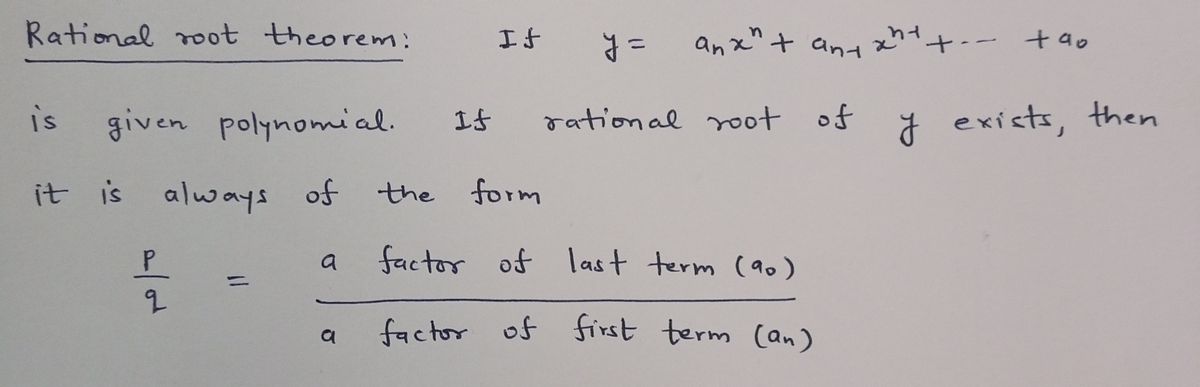 Rational root theorem: If y = aₙxⁿ + aₙ₋₁ xⁿ⁻¹ + --- + a₀
is given polynomial. If rational root of y exists, then
it is always of the form
p/q = a factor of last term (a₀) / a factor of first term (aₙ)